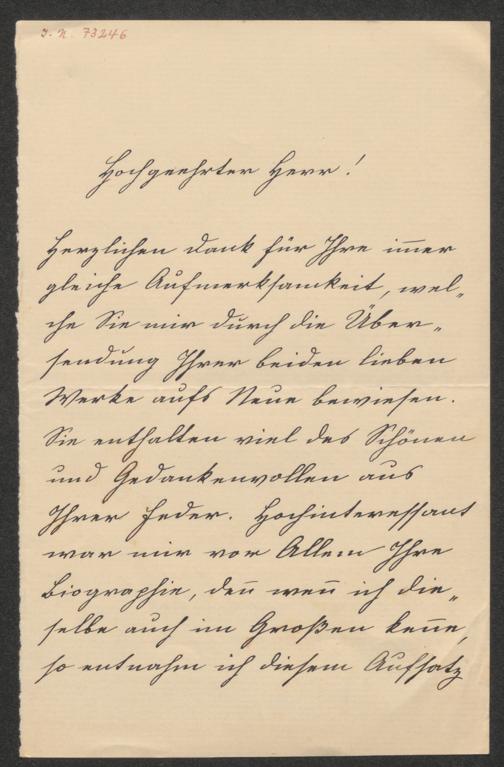 I. N. 73246
Hochgeehrter Herr!
Herzlichen Dank für Ihre im̅er
gleiche Aufmerksamkeit, wel„
che Sie mir durch die Über„
sendung Ihrer beiden lieben
Werke aufs Neue bewiesen.
Sie enthalten viel des Schönen
und Gedankenvollen aus
Ihrer Feder. Hochinteressant
war mir vor Allem Ihre
Biographie, den̅ wen̅ ich die„
selbe auch im Großen ken̅e,
so entnahm ich diesem Aufsatz